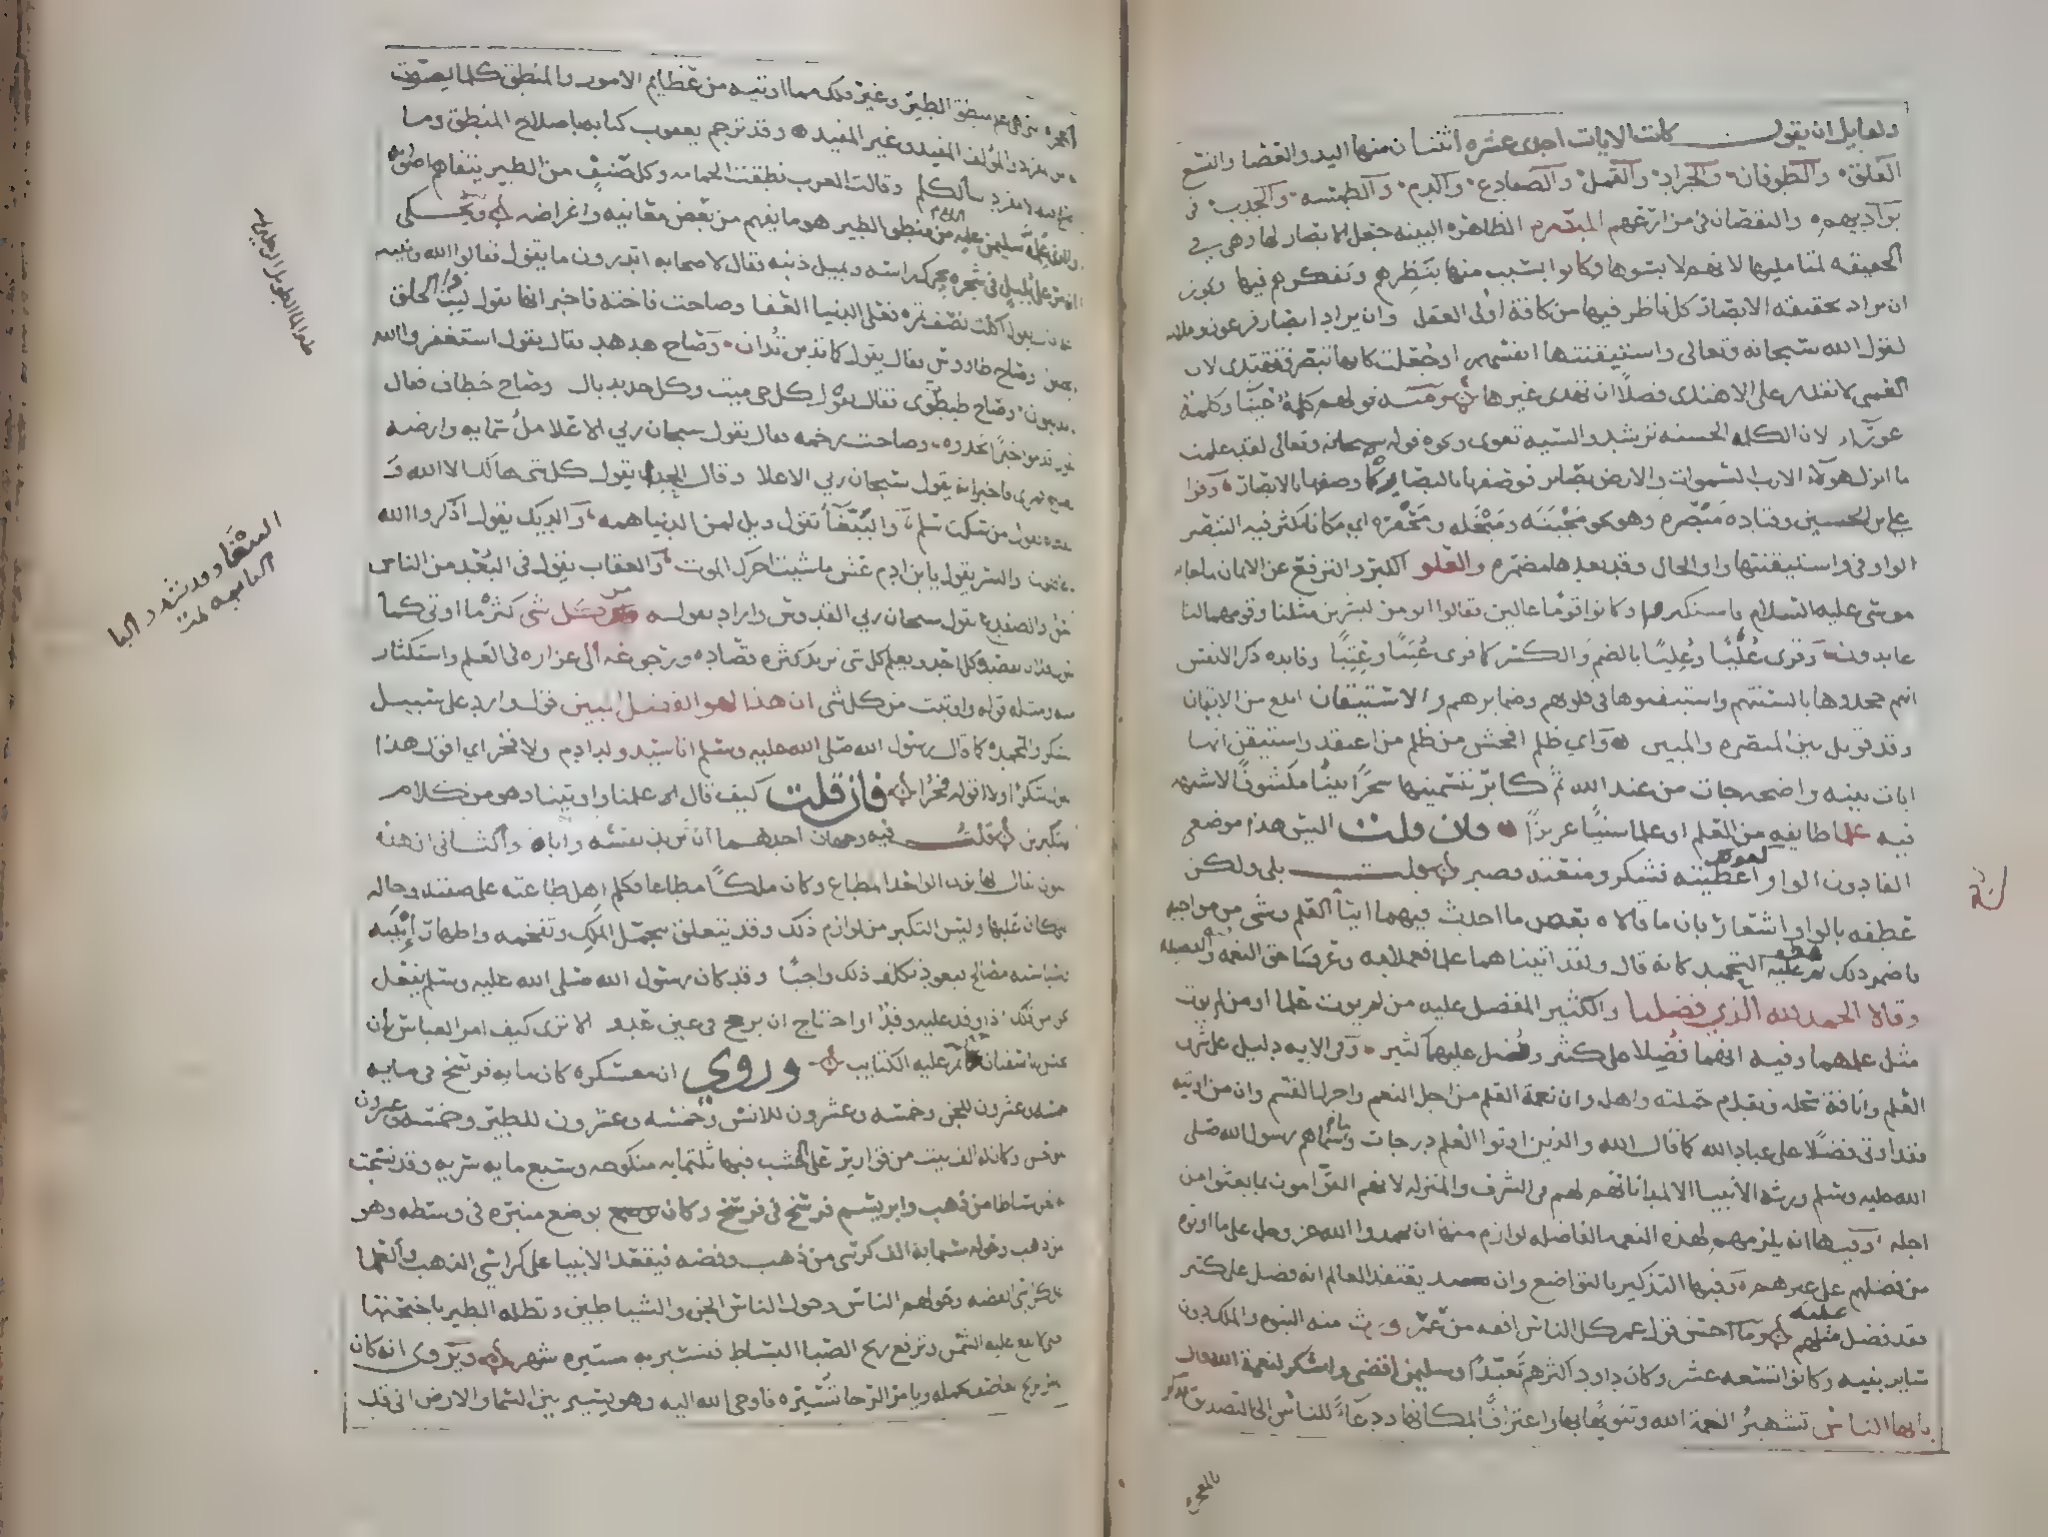 ولقايل ان يقول كانت الايات احدى عشره اثنتان منها اليد والعصا والتسع
الفلق والطوفان والجراد والقمل والضفادع والدم والطمسه والجدب في
بواديهم والنقصان في مزارعهم المبصره الظاهره البينه جعل الابصار لها وهي في
الحقيقه لمتامليها لانهم لابسوها وكانوا بسبب منها بنظرهم وتفكرهم فيها ويجوز
ان يراد بحقيقه الابصار كل ناظر فيها من كافة اولى العقل وان يراد ابصار فرعون وملائه
لقول الله سبحانه وتعالى واستيقنتها انفسهم او جعلت كانها تبصر فتهتدى لان
العمى لا تقدر على الاهتداى فضلا ان تهدى غيرها ومنه قولهم كلمة عينا وكلمة
عورآء لان الكلمه الحسنه ترشد والسيه تغوى ونحوه قوله سبحانه وتعالى لقد علمت
ما انزل هولاء الا رب السموات والارض بصاير فوصفها بالبصايركما وصفها بالابصار وقرا
على بن الحسين وقتاده مبصره وهو نحو مجبنه ومبخله ومجفره اي مكانا يكثر فيه التبصر
الواو في واستيقنتها واو الحال وقد بعدها مضمره والعلو الكبر والترفع عن الايمان بما جا به
موسى عليه السلام فاستكبروا وكانوا قوما عالين فقالوا انومن لبشرين مثلنا وقومهما لنا
عابدون وقرى عُليًّا وعِليًا بالضم والكسر كما قرى عُتيًا وعِتيًا وفايده ذكر الانفس
انهم جحدوها بالسنتهم واستيقنوها في قلوبهم وضمايرهم والاستيقان ابلغ من الايقان
وقد قوبل بين المبصره والمبين واي ظلم افحش من ظلم من اعتقد واستيقن انها
ايات بينه واضحه جات من عند الله ثم كابر بتسميتها سحرًا بينًا مكشوفًا لا شبهه
فيه علما طايفه من العلم او علما سنيًا عزيزًا فان قلت اليس هذا موضع
الفا دون الواو كقولك اعطيته فشكر ومنعته فصبر قلت بلى ولكن
عطفه بالواو اشعار بان ما قالاه بعض ما احدث فيهما ايتآ العلم وشى من مواجبه
فاضمر ذلك ثم عطف عليه التحميد كانه قال ولقد اتيناهما علما فعملا به وعرفنا حق النعمه فيه والفضيله
وقالا الحمد لله الذي فضلنا والكثير المفضل عليه من لم يوت علما او من لم يوت
مثل علمهما وفيه انهما فُضلا على كثير وفُضل عليهما كثير وفى الايه دليل على شرف
العلم وانافة محله وتقدم حملته واهله وان نعمة العلم من اجل النعم واجزل القسم وان من اوتيه
فقد اوتى فضلا على عباد الله كما قال الله والذين اوتوا العلم درجات وما سماهم رسول الله صلى
الله عليه وسلم ورثه الانبيا الا لمداناتهم لهم في الشرف والمنزله لانهم القوامون بما بعثوا من
اجله وفيها انه يلزمهم لهذه النعمه الفاضله لوازم منها ان يحمدوا الله عز وجل على ما اوتوه
من فضلهم على غيرهم وفيها التذكير بالتواضع وان يعتقد العالم انه فضل على كثير
فقد فضل عليه مثلهم وما احسن قول عمر كل الناس افقه من عمر ورث منه النبوه والملك دون
ساير بنيه وكانوا تسعه عشر وكان داود اكثرهم تعبدًا وسليمن اقضى واشكر لنعمة الله وقال
يا ايها الناس تشهيرُ النعمة الله وتنويهًا بها واعترافًا بمكانها ودعاءً للناس الى التصديق بذكر
بالمعجزه
المعجزه التي هي علم منطق الطير وغير ذلك مما اوتيه من عظايم الامور والمنطق كلما يصوت
به من المفرد والمؤلف المفيد وغير المفيد وقد ترجم يعقوب كتابه باصلاح المنطق وما
اصلح فيه الا مفردات الكلم وقالت العرب نطقت الحمامه وكل صنف من الطير يتفاهم اصواته
والذى عُلمه سليمن عليه السلم من منطق الطير هو ما يفهم من بعض معانيه واغراضه ويحكى
انه مر على بلبل في شجره يحرك راسه ويميل ذنبه فقال لاصحابه اتدرون ما يقول فقالوا الله ونبيه
اعلم قال يقول اكلت نصف تمره فعلى الدنيا العفا وصاحت فاخته فاخبر انها تقول ليت ذا الخلق
لم يخلقوا وصاح طاووس فقال يقول كما تدين تُدان وصاح هدهد فقال يقول استغفروا الله
يا مذنبون وصاح طيطوى فقال يقول كل حى ميت وكل جديد بال وصاح خطاف فقال
يقول قدموا خيرًا تجدوه وصاحت رخمه فقال يقول سبحان ربي الاعلا ملُ سمايه وارضه
وصاح قمرى فاخبر انه يقول سبحان ربي الاعلا وقال الحدا يقول كل شى هالك الا الله و
القطاه تقول من سكت سلم والببغآ تقول ويل لمن الدنيا همه والديك يقول اذكروا الله
يا غافلين والنسر يقول يا بن ادم عش ما شيت اخرك الموت والعقاب يقول في البُعْد من الناس
انس والضفدع يقول سبحان ربي القدوس واراد بقوله من كل شى كثرة ما اوتي كما
تقول فلان يقصده كل احد ويعلم كل شى تريد كثره قصاده ورجوعه الى غزاره في العلم واستكثار
منه ومثله قوله واوتيت من كل شى ان هذا لهو الفضل المبين قول وارد على سبيل
الشكر والمحمده كما قال رسول الله صلى الله عليه وسلم انا سيد ولد ادم ولا فخر اي اقول هذا
القول شكرًا ولا اقوله فخرًا فان قلت كيف قال علمنا واوتينا وهو من كلام
المتكبرين قلت فيه وجهان احدهما ان يريد نفسه واباه والثانى ان هذه
النون يقال لها نون الواحد المطاع وكان ملكًا مطاعا فكلم اهل طاعته على صفته وحاله
التي كان عليها وليس التكبر من لوازم ذلك وقد يتعلق بتجمل الملك وتفخمه واظهار آيينه
وسياسته مصالح فيعود تكلف ذلك واجبًا وقد كان رسول الله صلى الله عليه وسلم يفعل
نحوًا من ذلك اذا وفد عليه وفدٌ او احتاج ان يرجح في عين عدو الا ترى كيف امر العباس بان
يحبس ابا سفيان حتى تمر عليه الكتايب وروي ان معسكره كان مايه فرسخ في مايه
خمسه وعشرون للجن وخمسه وعشرون للانس وخمسه وعشرون للطير وخمسه وعشرون
للوحش وكان له الف بيت من قوارير على الخشب فيها ثلثمايه منكوحه وسبع مايه سريه وقد نسجت
له الجن بساطا من ذهب وابريشم فرسخ في فرسخ وكان يوضع منبره في وسطه وهو
من ذهب وحوله ستمايه الف كرسى من ذهب وفضه فيقعد الانبيا على كراسي الذهب والعلما
على كراسى الفضه وحولهم الناس وحول الناس الجن والشياطين وتظله الطير باجنحتها
حتى لا تقع عليه الشمس وترفع ريح الصبا البساط فتسير به مسيره شهر ويروى انه كان
يامر الريح العاصف تحمله ويامر الرخا تُسيره فاوحى الله اليه وهو يسير بين السما والارض انى قد